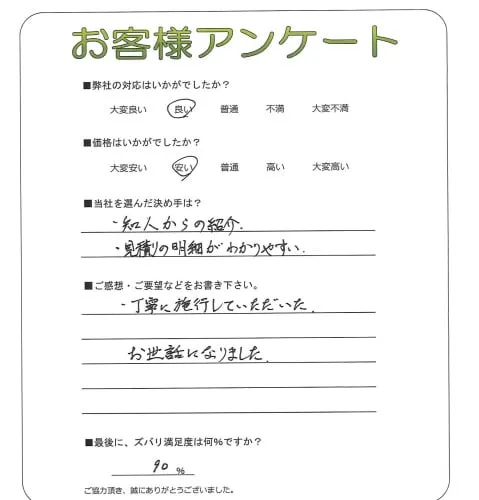 お客様アンケート
■弊社の対応はいかがでしたか？
大変良い 良い 普通 不満 大変不満
■価格はいかがでしたか？
大変安い 安い 普通 高い 大変高い
■当社を選んだ決め手は？
・知人からの紹介.
・見積りの明細がわかりやすい.
■ご感想・ご要望などをお書き下さい。
・丁寧に施行していただいた.
お世話になりました.
■最後に、ズバリ満足度は何％ですか？
90 ％
ご協力頂き、誠にありがとうございました。